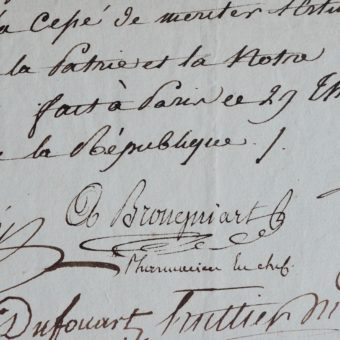 a Cessé de meriter
la Patrie et la Notre
fait à Paris ce 29
de la République
Brongniart
Pharmacien En chef
Dufouart